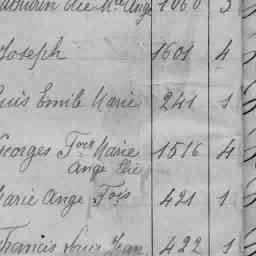 Ange 1060 3
Joseph 1601 4
Louis Emile Marie 241 1
Georges Fois Marie 1516 4
Ange
Marie Ange Fois 421 1
Francis Louis Jean 422 1